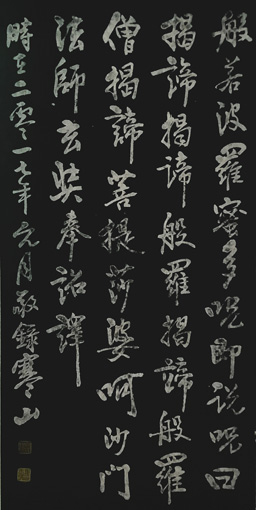 般若波羅蜜多呪即説呪曰
揭諦揭諦般羅揭諦般羅
僧揭諦菩提莎婆呵沙门
法師玄奘奉詔譯
時在二零一七年元月敬錄寒山